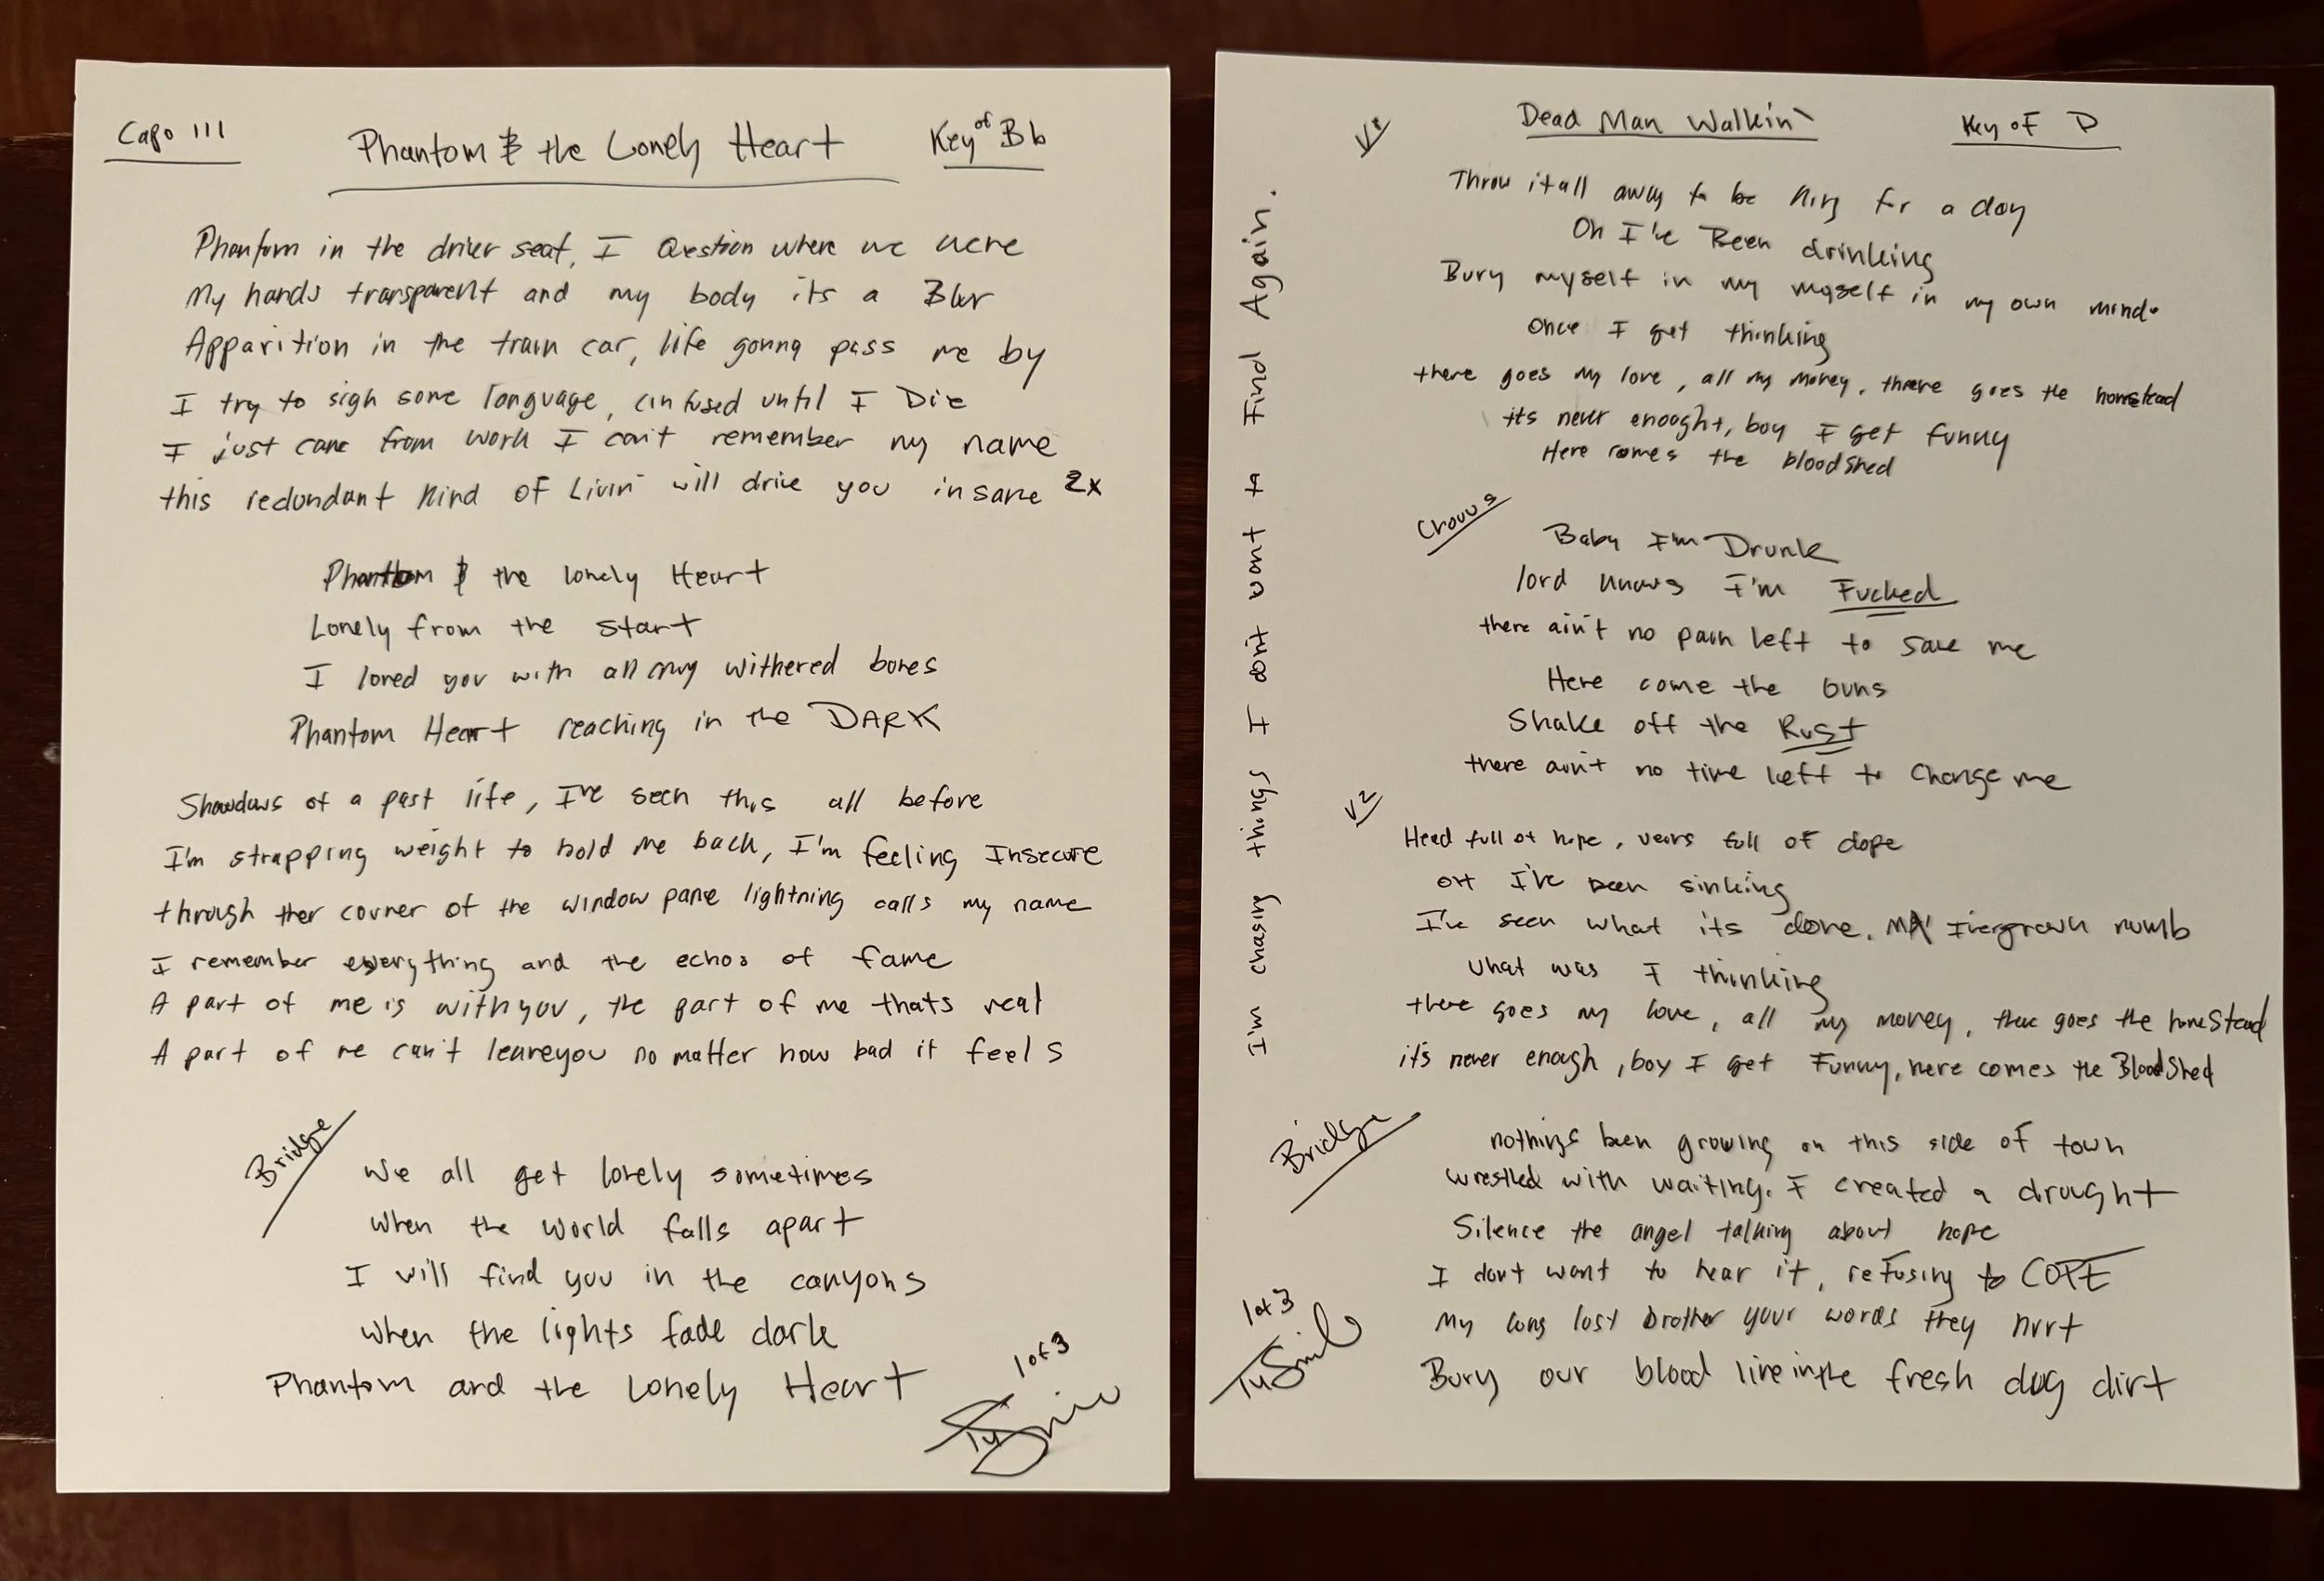 Capo III
Phantom & the Lonely Heart
Key of Bb
Phantom in the driver seat, I Question where we were
My hands transparent and my body its a Blur
Apparition in the train car, life gonna pass me by
I try to sigh some language, confused until I Die
I just came from work I can't remember my name
this redundant kind of Livin' will drive you insane 2x
Phantom & the lonely Heart
Lonely from the start
I loved you with all my withered bones
Phantom Heart reaching in the DARK
Shawdows of a past life, I've seen this all before
I'm strapping weight to hold me back, I'm feeling Insecure
through ther corner of the window pane lightning calls my name
I remember everything and the echos of fame
A part of me is with you, the part of me thats real
A part of me can't leave you no matter how bad it feels
Bridge
We all get lonely sometimes
when the world falls apart
I will find you in the canyons
when the lights fade dark
Phantom and the Lonely Heart
1 of 3
Dead Man Walkin'
Key of D
V1
Throw it all away to be king for a day
Oh I've Been drinking
Bury myself in my myself in my own mind.
Once I get thinking
there goes my love, all my money, there goes the homestead
its never enought, boy I get funny
Here comes the bloodshed
Chorus
Baby I'm Drunk
lord knows I'm Fucked
there ain't no pain left to save me
Here come the Guns
Shake off the Rust
there ain't no time left to change me
V2
Head full of hope, veins full of dope
oh I've been sinking
I've seen what its done, overgrown numb
what was I thinking
there goes my love, all my money, there goes the homestead
it's never enough, boy I get Funny, here comes the Bloodshed
Bridge
nothings been growing on this side of town
wrestled with waiting. I created a drought
Silence the angel talking about hope
I don't want to hear it, refusing to COPE
My long lost brother your words they hurt
Bury our blood line in the fresh dug dirt
1 of 3
I'm chasing things I don't want to Find Again.